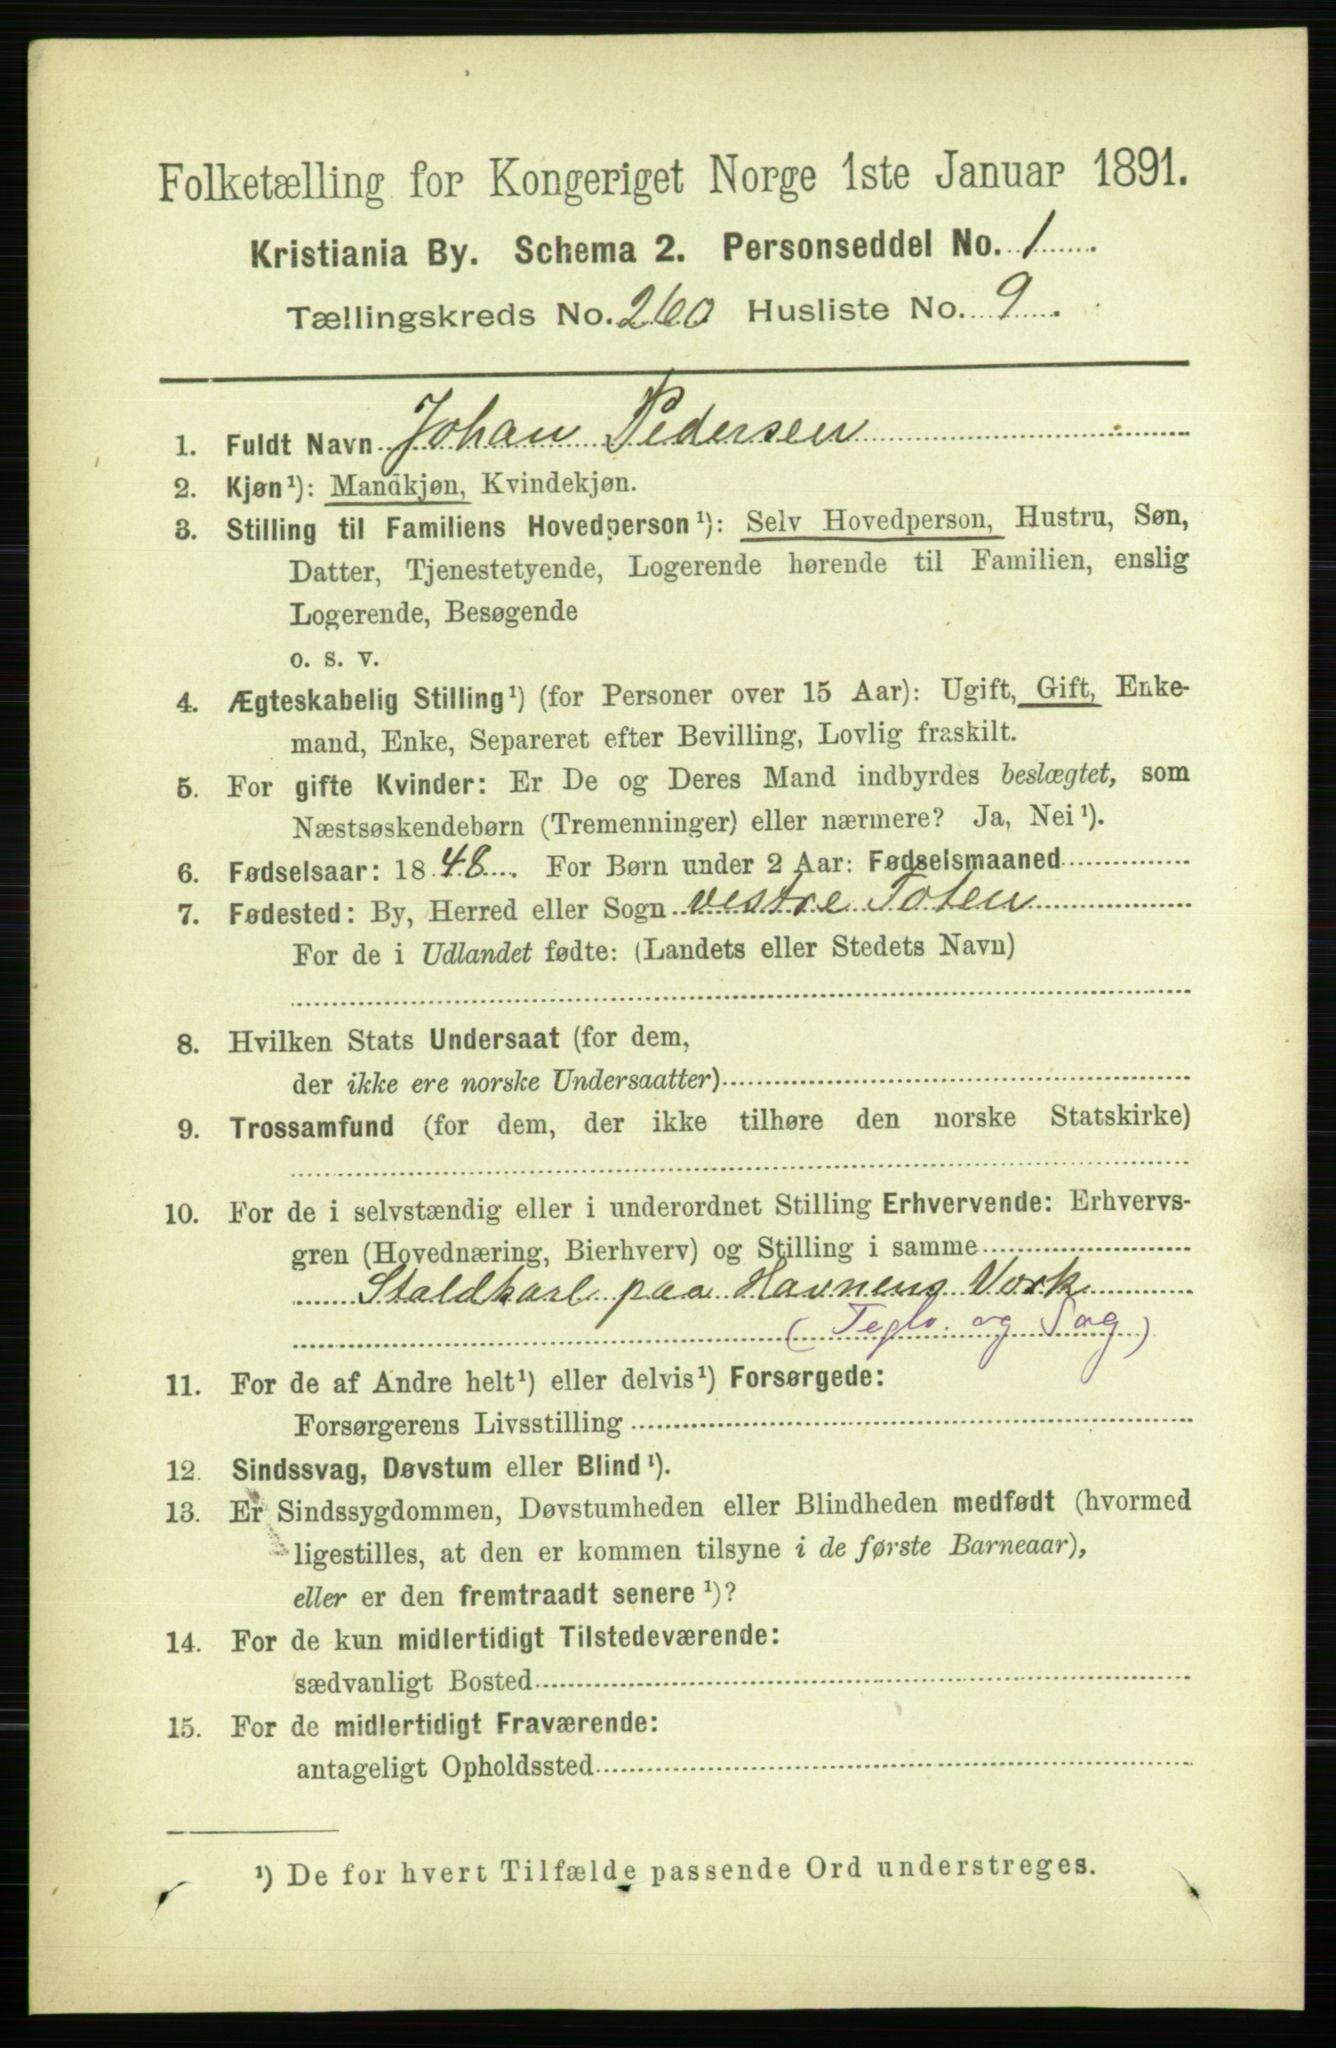 Folketælling for Kongeriget Norge 1ste Januar 1891.
Kristiania By. Schema 2. Personseddel No. 1
Tællingskreds No. 260 Husliste No. 9
1. Fuldt Navn Johan Pedersen
2. Kjøn¹): Mandkjøn, Kvindekjøn.
3. Stilling til Familiens Hovedperson¹): Selv Hovedperson, Hustru, Søn,
Datter, Tjenestetyende, Logerende hørende til Familien, enslig
Logerende, Besøgende
o. s. v.
4. Ægteskabelig Stilling¹) (for Personer over 15 Aar): Ugift, Gift, Enke-
mand, Enke, Separeret efter Bevilling, Lovlig fraskilt.
5. For gifte Kvinder: Er De og Deres Mand indbyrdes beslægtet, som
Næstsøskendebørn (Tremenninger) eller nærmere? Ja, Nei¹).
6. Fødselsaar: 1848. For Børn under 2 Aar: Fødselsmaaned
7. Fødested: By, Herred eller Sogn vestre Toten
For de i Udlandet fødte: (Landets eller Stedets Navn)
8. Hvilken Stats Undersaat (for dem,
der ikke ere norske Undersaatter)
9. Trossamfund (for dem, der ikke tilhøre den norske Statskirke)
10. For de i selvstændig eller i underordnet Stilling Erhvervende: Erhvervs-
gren (Hovednæring, Bierhverv) og Stilling i samme
Staldkarl paa Havnens Værk
(Teglv. og Sag)
11. For de af Andre helt¹) eller delvis¹) Forsørgede:
Forsørgerens Livsstilling
12. Sindssvag, Døvstum eller Blind¹).
13. Er Sindssygdommen, Døvstumheden eller Blindheden medfødt (hvormed
ligestilles, at den er kommen tilsyne i de første Barneaar),
eller er den fremtraadt senere¹)?
14. For de kun midlertidigt Tilstedeværende:
sædvanligt Bosted
15. For de midlertidigt Fraværende:
antageligt Opholdssted
¹) De for hvert Tilfælde passende Ord understreges.